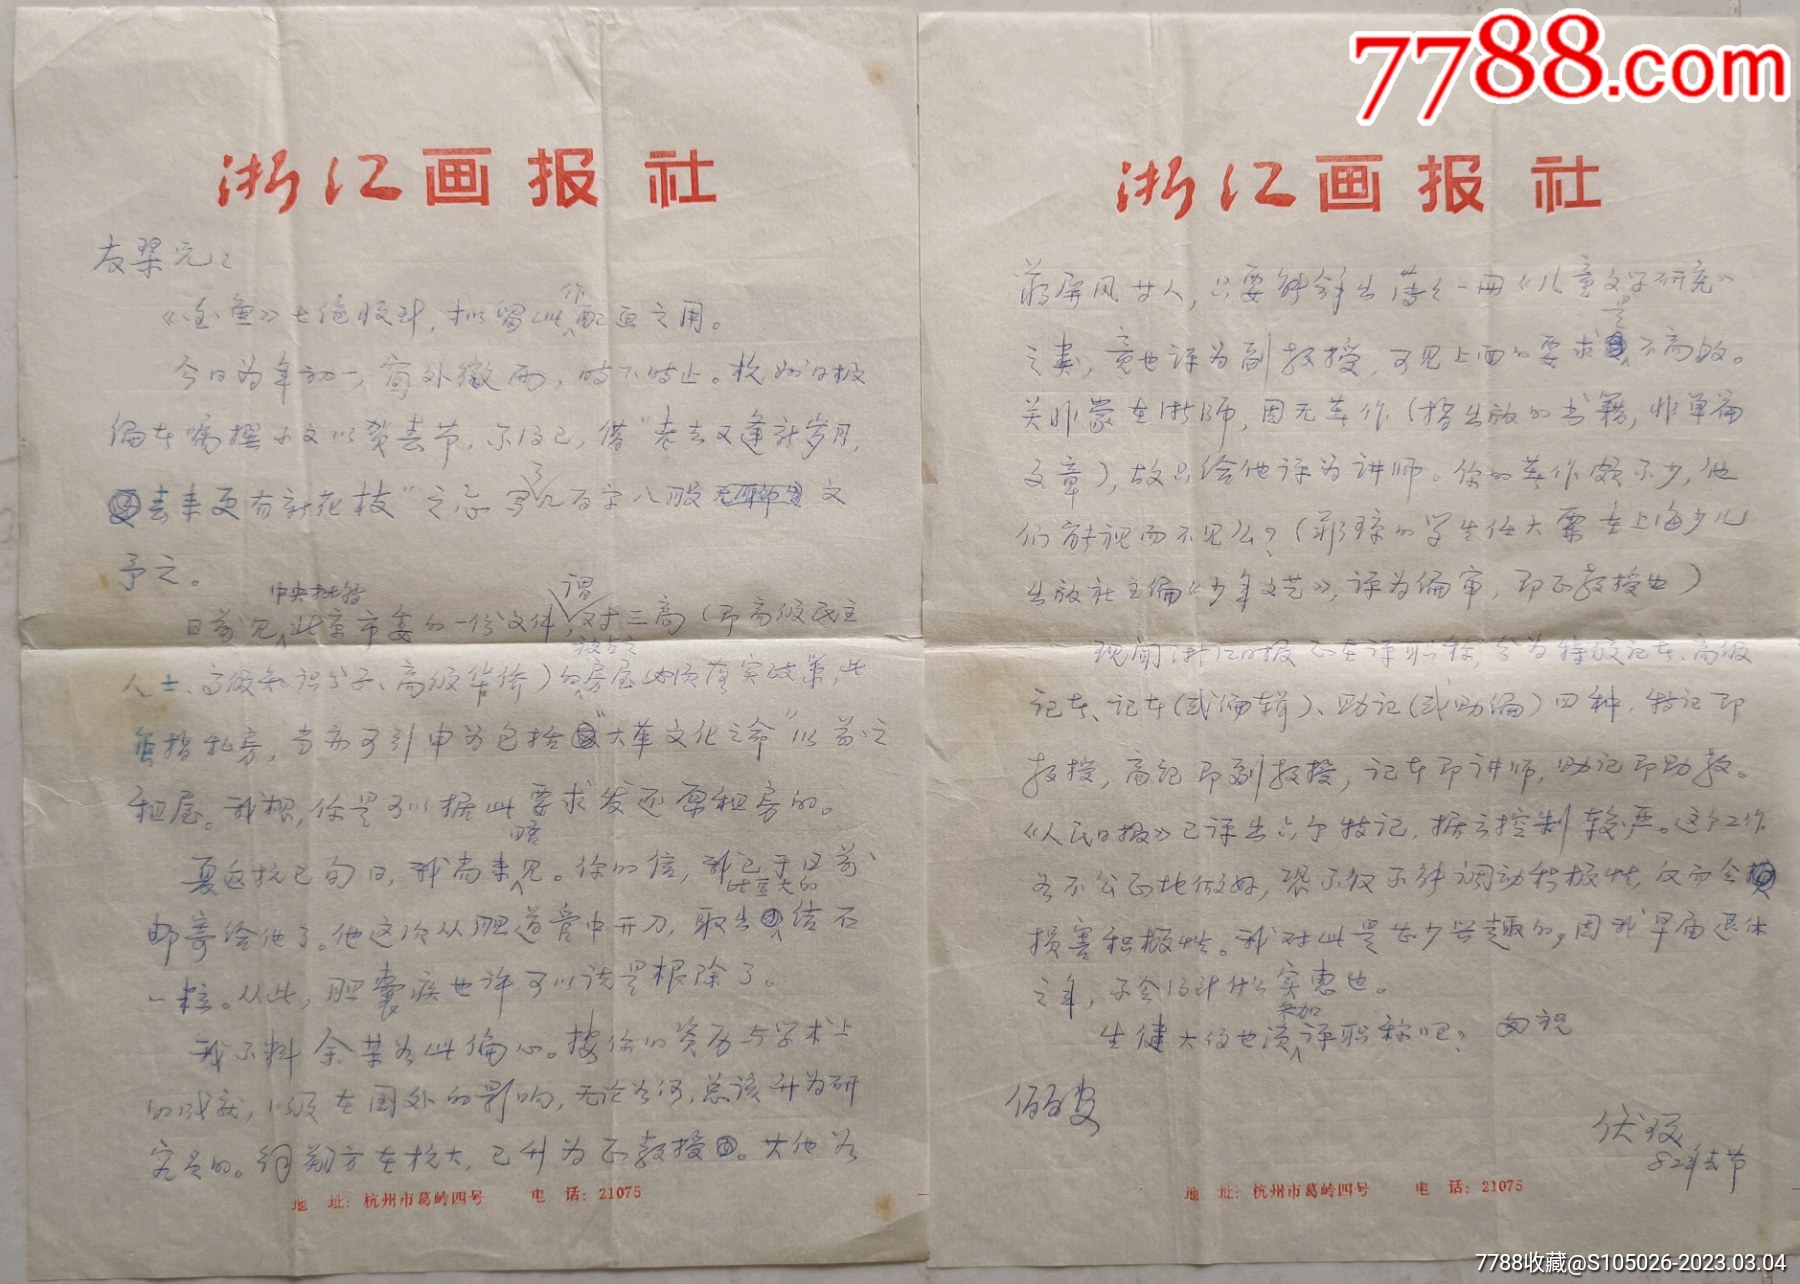 浙江画报社
友琹兄:
《金鱼》七绝收到,拟留此作配画之用。
今日为年初一,窗外微雨,时下时止。杭州日报
编者嘱撰小文以贺春节,不得已,借“老去又逢新岁月,
春来更有新花枝”之意写了几百字八股文
予之。
日前见中央批转北京市委的一份文件,谓对三高(即高级民主
人士、高级知识分子、高级华侨)的房屋必须落实政策,此
虽指私房,当亦可引申为包括“大革文化之命”以前之
租屋。我想,你是可以据此要求发还原租房的。
夏返杭已旬日,我尚未晤见。你的信,我已于日前
邮寄给他了。他这次从胆道管中开刀,取出此豆大的结石
一粒。从此,胆囊疾也许可以说是根除了。
我不料余某为此偏心。按你的资历与学术上
的成就,以及在国外的影响,无论为何,总该升为研
究员的。方在杭大,已升为正教授。其他为
地 址:杭州市葛岭四号 电 话:21075
浙江画报社
屏风女人,只要能拿出薄薄一册《儿童文学研究》
之类,竟也评为副教授,可见上面的要求是不高的。
关非蒙在浙师,因无著作(指出版的书籍,非单篇
文章),故只给他评为讲师。你的著作颇不少,他
们能视而不见么?(的学生任大霖在上海少儿
出版社主编《少年文艺》,评为编审,即正教授也)
现闻浙江日报正在评职称,分为特级记者、高级
记者、记者(或编辑)、助记(或助编)四种,特记即
教授,高记即副教授,记者即讲师,助记即助教。
《人民日报》已评出六个特记,据云控制较严。这个工作
若不公正地做好,恐不仅不能调动积极性,反而会
损害积极性。我对此是甚少兴趣的,因我早届退休
之年,不会得到什么实惠也。
生健大约也须参加评职称吧?匆祝
俪安
伏
82年春节
地 址:杭州市葛岭四号 电 话:21075
7788.com
7788收藏@S105026-2023.03.04